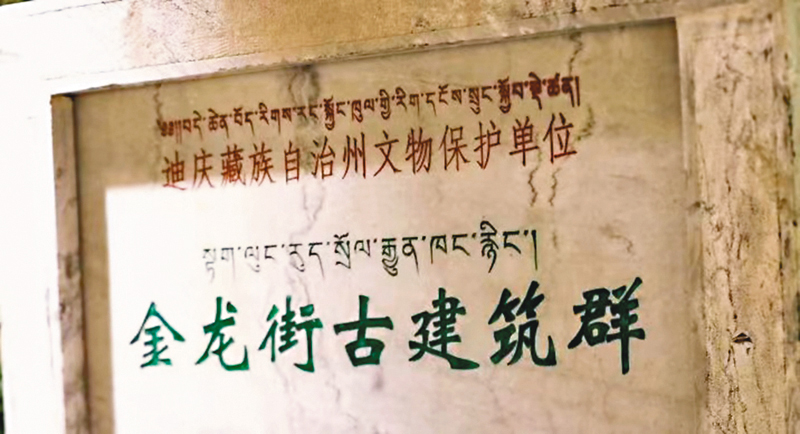 ༄༅།།བདེ་ཆེན་བོད་རིགས་རང་སྐྱོང་ཁུལ་གྱི་རིག་དངོས་སྲུང་སྐྱོབ་སྡེ་ཚན།
迪庆藏族自治州文物保护单位
སྟག་ལུང་རུད་སྲོལ་རྒྱུན་ཁང་རྙིང་།
金龙街古建筑群